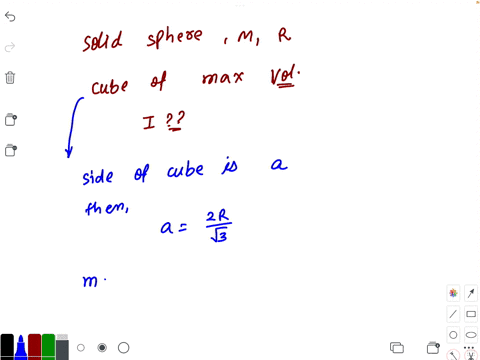 solid sphere, M, R
cube of max Vol.
I ??
side of cube is a
then,
a = 2R/√3
m.